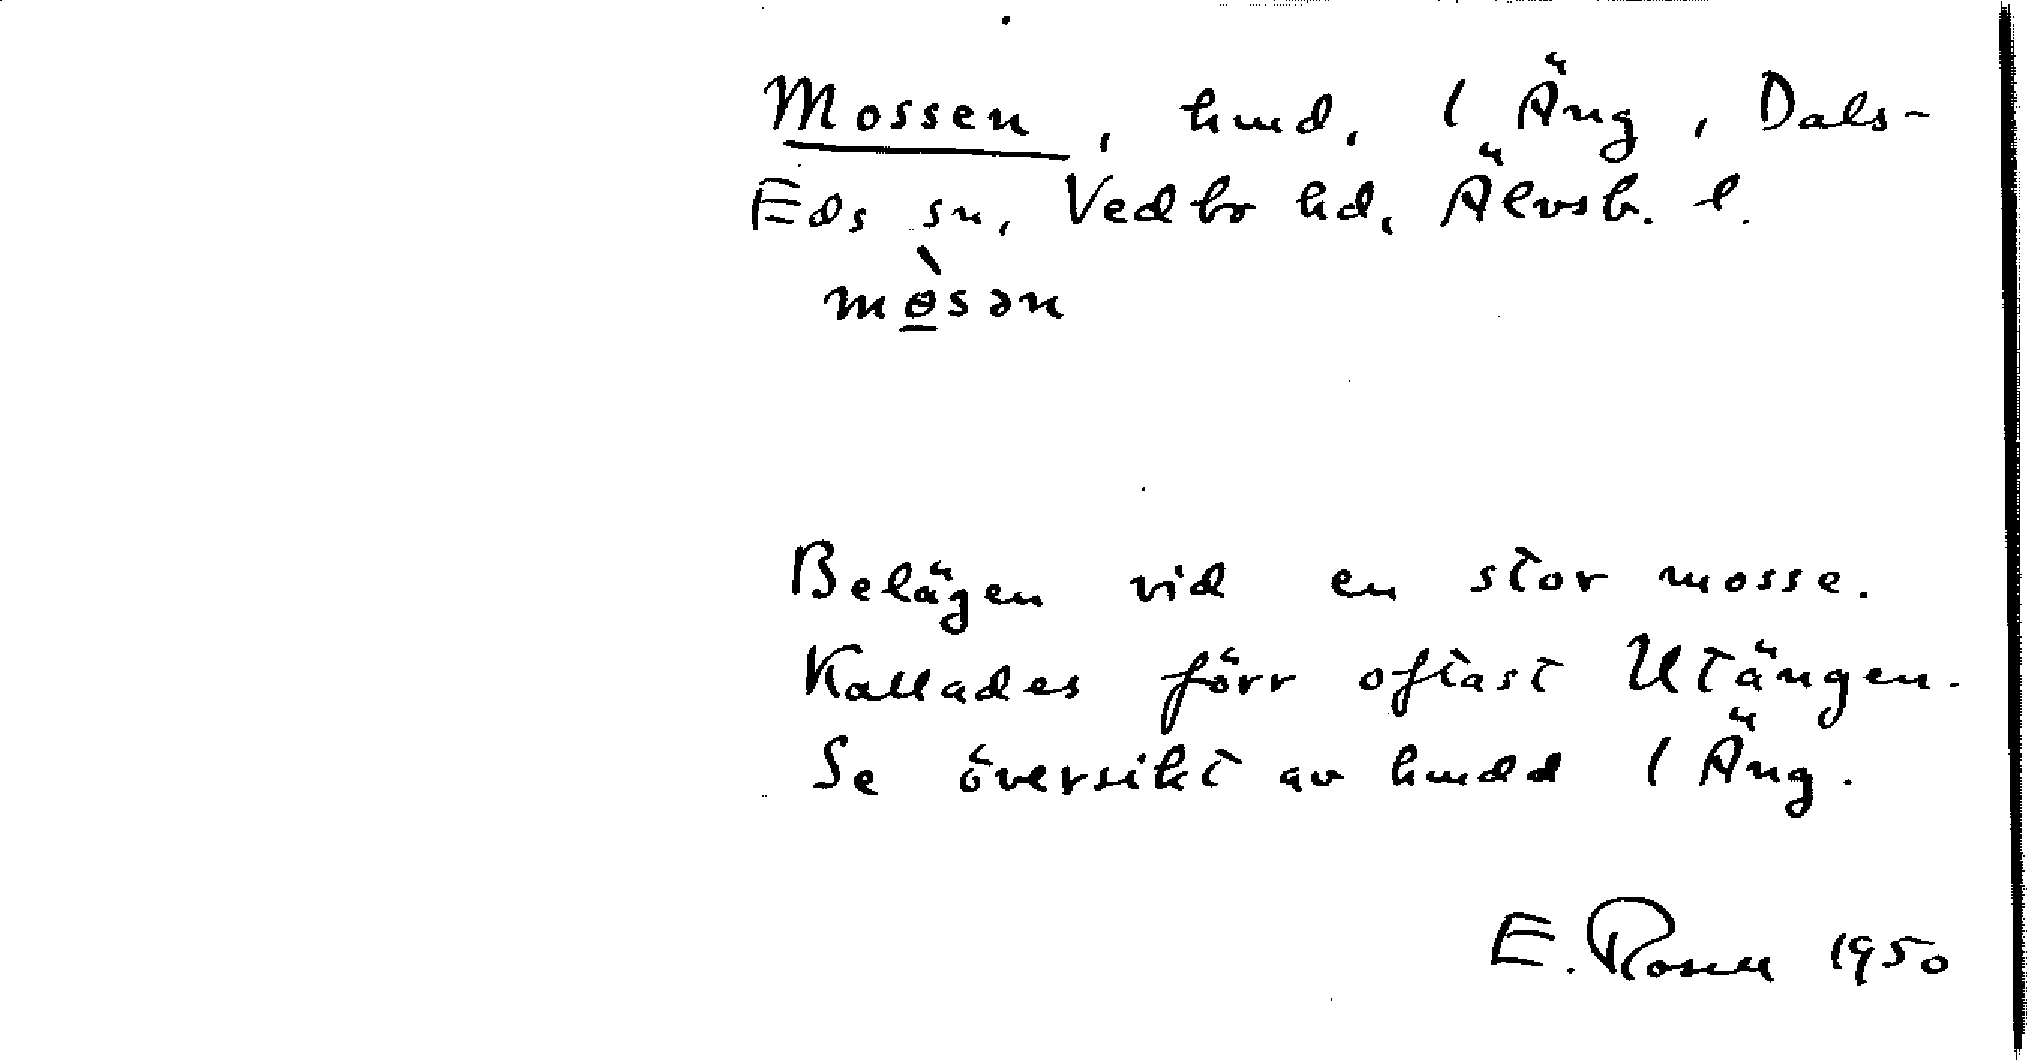 Mossen, hmd, 1 Äng, Dals-
Eds sn, Vedbo hd, Älvsb. l.
mɵ̲̀sən
Belägen vid en stor mosse.
Kallades förr oftast Utängen.
Se översikt av hmdd 1 Äng.
E. Rosell 1950